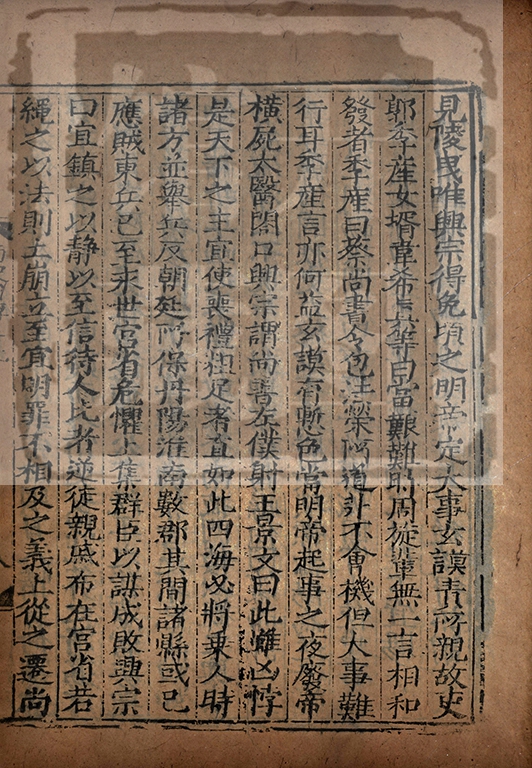 見陵曳唯興宗得免頃之明帝定大事玄謨責所親故吏
郭季産女壻韋希真等曰當艱難時周旋輩無一言相和
發者季産曰蔡尚書令包汪榮所道非不會機但大事難
行耳季産言亦何益玄謨有慙色當明帝起事之夜廢帝
橫屍太醫閤口興宗謂尚書左僕射王景文曰此雖凶悖
是天下之主宜使喪禮粗足者直如此四海必將乗人時
諸方並舉兵反朝廷所保丹陽淮南數郡其間諸縣或已
應賊東兵已至永世宮省危懼上集群臣以謀成敗興宗
曰宜鎮之以静以至信待人比者逆徒親戚布在宮省若
繩之以法則土崩立至宜明罪不相及之義上從之遷尚